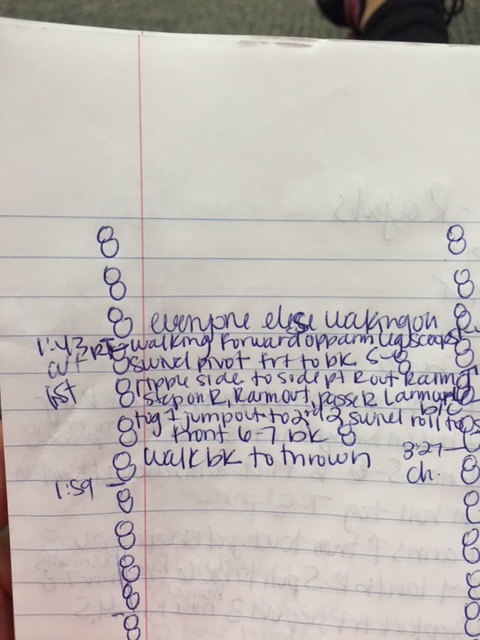 8 8
8 8
8 everyone else walking on 8
1:43 walking forward opp arm leg scoops 8
swivel pivot frt to bk 5-8 8
1st 8 ripple side to side pt R out R arm
8 step on R, R arm out, passe L arm up
8 tog 1 jump out to 2nd 2 swivel roll
front 6-7 bk 8
8 walk bk to thrown 3:27 8
ch. 8
1:59 8 8
8 8
8 8
8 8
8 8